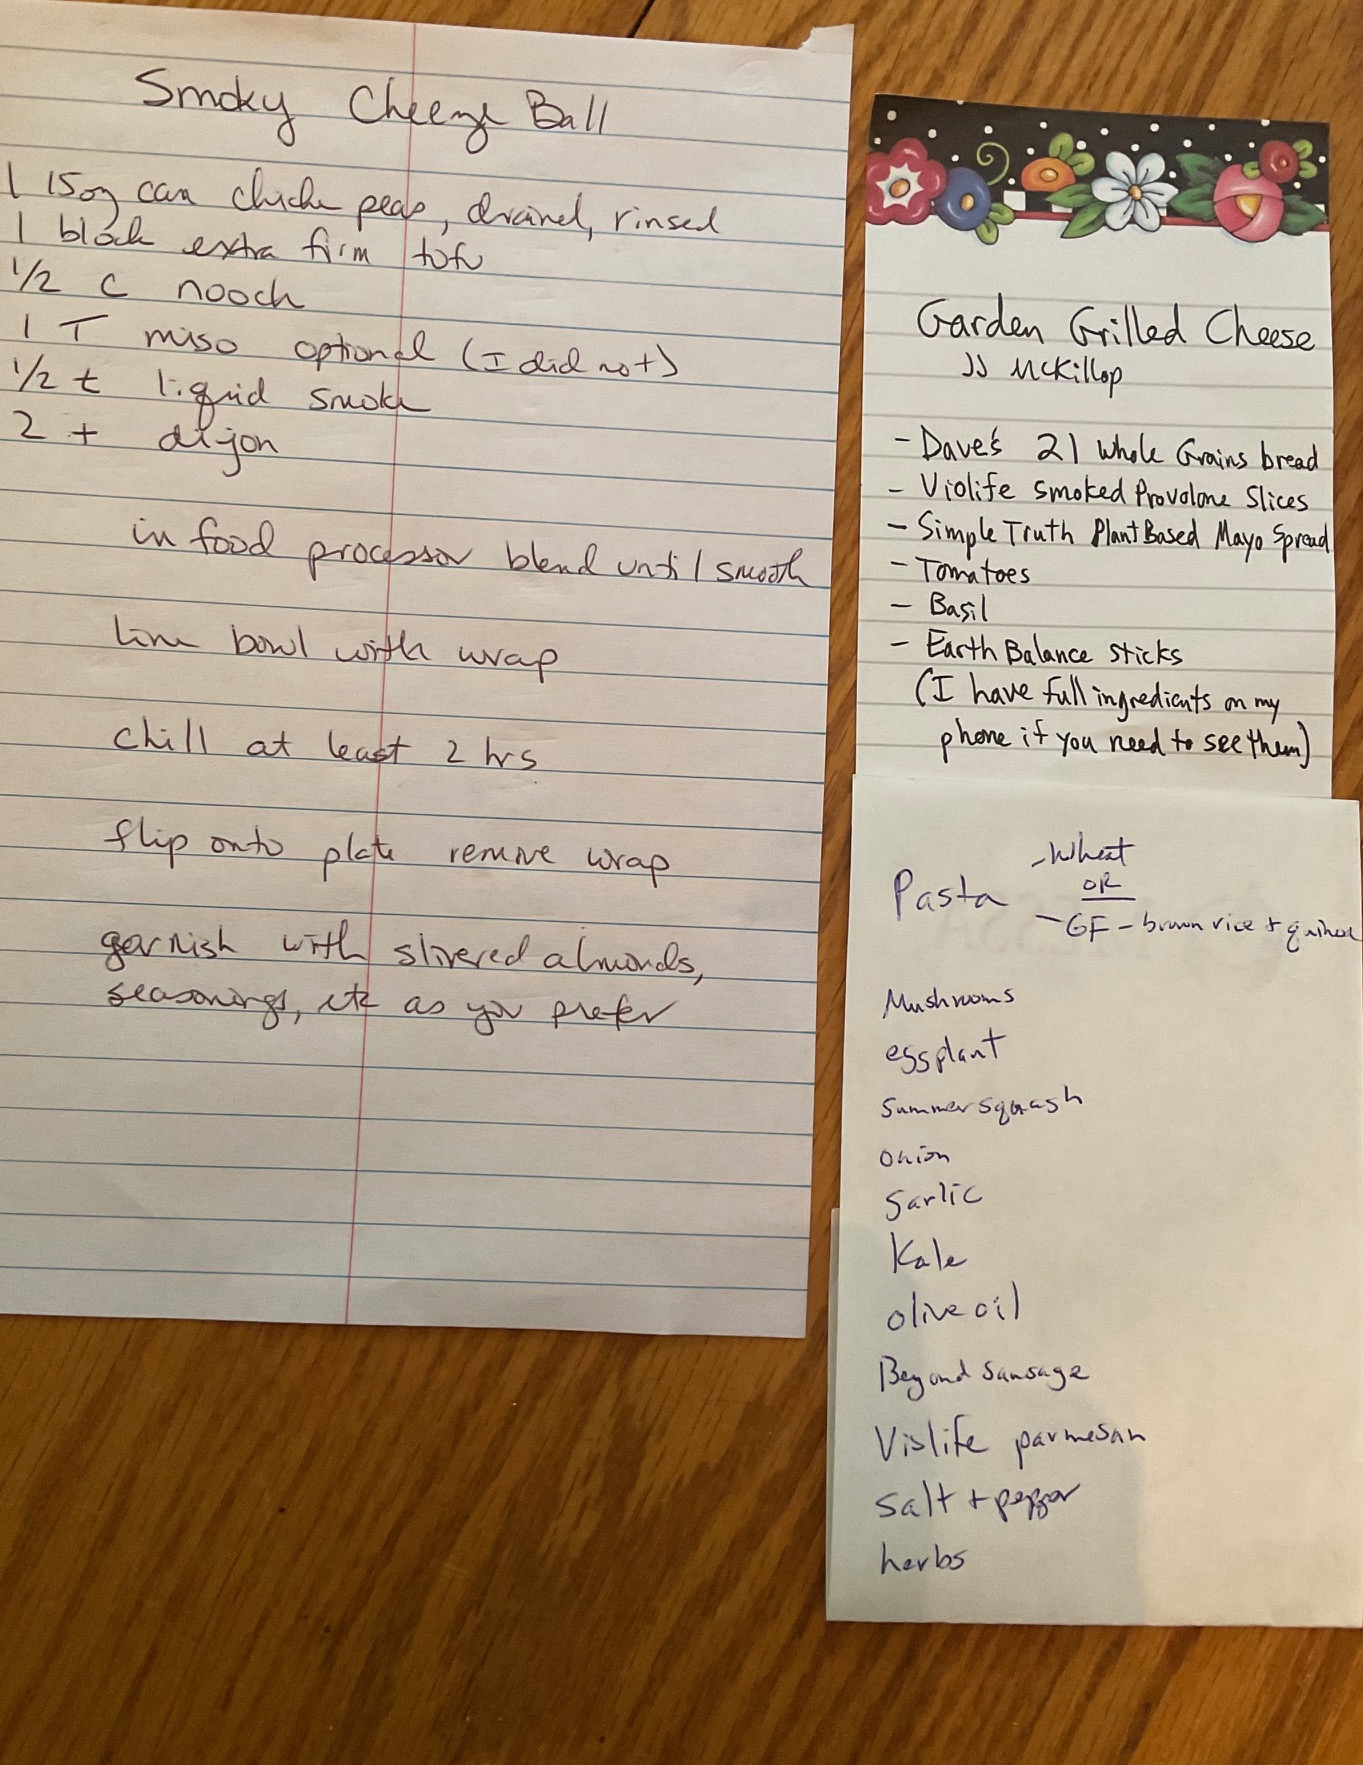 Smoky Cheeze Ball
1 15oz can chick peas, drained, rinsed
1 block extra firm tofu
1/2 c nooch
1 T miso optional (I did not)
1/2 t liquid smoke
2 t dijon
in food processor blend until smooth
line bowl with wrap
chill at least 2 hrs
flip onto plate remove wrap
garnish with slivered almonds,
seasonings, etc as you prefer
Garden Grilled Cheese
JJ McKillop
- Dave's 21 Whole Grains bread
- Violife Smoked Provolone Slices
- Simple Truth Plant Based Mayo Spread
- Tomatoes
- Basil
- Earth Balance Sticks
(I have full ingredients on my
phone if you need to see them)
- Wheat
Pasta OR
- GF - brown rice + quinoa
Mushrooms
eggplant
summer squash
onion
garlic
Kale
olive oil
Beyond Sausage
Violife parmesan
salt + pepper
herbs